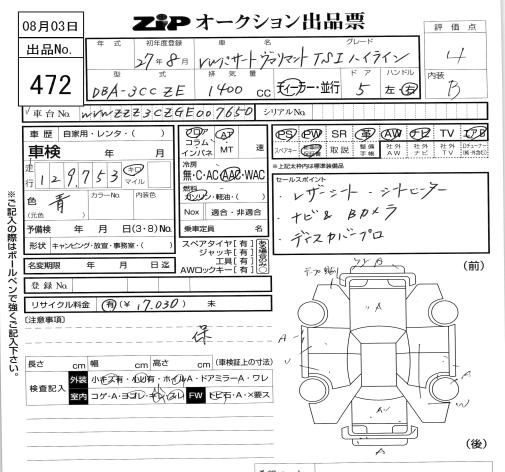 08月03日
出品No.
472
ZIP オークション出品票
年式 初年度登録 車名 グレード
27年8月 VWパサートヴァリアント TSI ハイライン
型式 排気量 ドア ハンドル
DBA-3CCZE 1400 CC ディーラー・並行 5 左 右
評価点
4
内装
B
車台No. WVWZZZ3CZGE007650 シリアルNo.
車歴 自家用・レンタ・( )
車検 年 月
走行 129,753 キロ マイル
色 青 カラーNo. 内装色
(元色)
予備検 年 月 日(3・8)No.
形状 キャンピング・放宣・事務室・( )
名変期限 年 月 日迄
登録No.
リサイクル料金 有(¥ 17,030) 未
コラム AT
インパネ MT 速
冷房
無・C・AC AAC・WAC
燃料
ガソリン・軽油・( )
Nox 適合・非適合
乗車定員 名
スペアタイヤ[有]
ジャッキ[有]
工具[有]
AWロックキー[有]
PS PW SR 革 AW ナビ TV エアB
スペアキー 取説 整備手帳 社外AW 社外ナビ 社外TV
※上記太枠内は標準装備品
セールスポイント
・レザーシート・シートヒーター
・ナビ&Bカメラ
・ディスカバープロ
[注意事項]
保
長さ cm 幅 cm 高さ cm (車検証上の寸法)
検査記入 外装 小キズ有・小凹有・ホイルA・ドアミラーA・ワレ
室内 コゲ・A・ヨゴレ・キレ・スレ FW トビ石・A・×要ス
※ご記入の際はボールペンで強くご記入下さい。
(前)
A
A
A
A
A
A
(後)